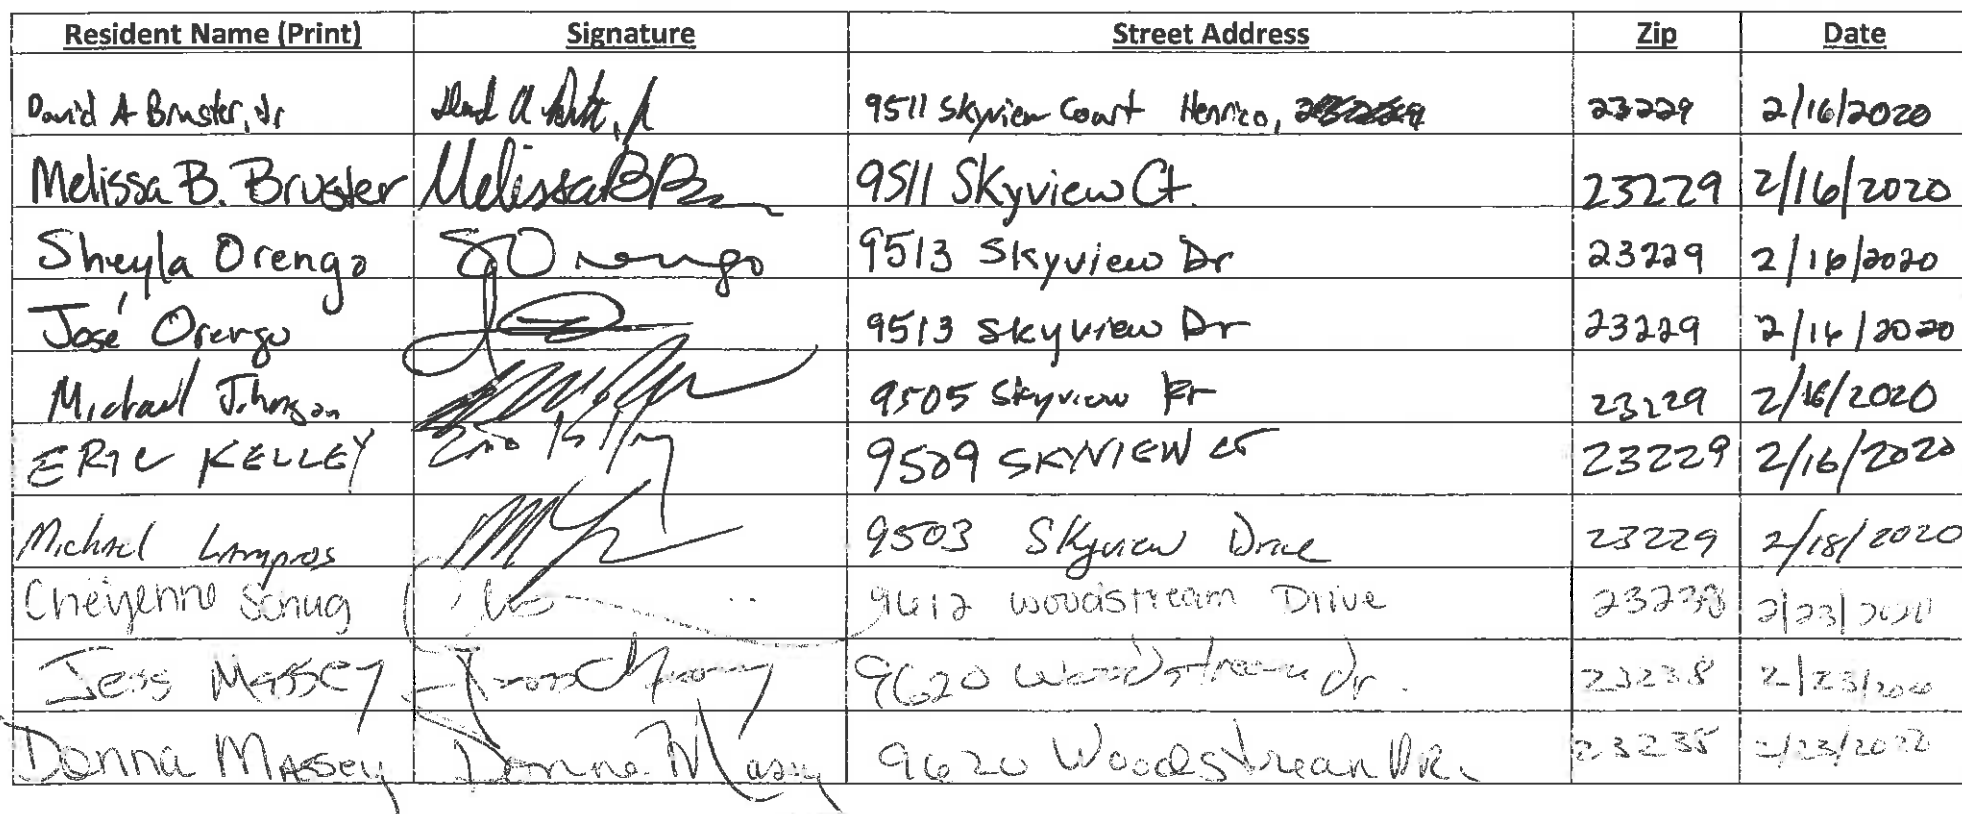 Resident Name (Print) Signature Street Address Zip Date
David A Bruster, Jr 9511 Skyview Court Henrico, 23229 2/16/2020
Melissa B. Bruster Melissa B 9511 Skyview Ct. 23229 2/16/2020
Sheyla Orengo S Orengo 9513 Skyview Dr 23229 2/16/2020
José Orengo 9513 Skyview Dr 23229 2/16/2020
Michael Johnson 9505 Skyview 23229 2/16/2020
ERIC KELLEY Eric Kelley 9509 SKYVIEW CT 23229 2/16/2020
Michael Lampros 9503 Skyview Drive 23229 2/18/2020
Cheyenne Schug 9612 Woodstream Drive 23238 2/23/2020
Jess Massey 9620 Woodstream Dr. 23238 2/23/2020
Donna Massey Donna Massey 9620 Woodstream DR. 23238 2/23/2020